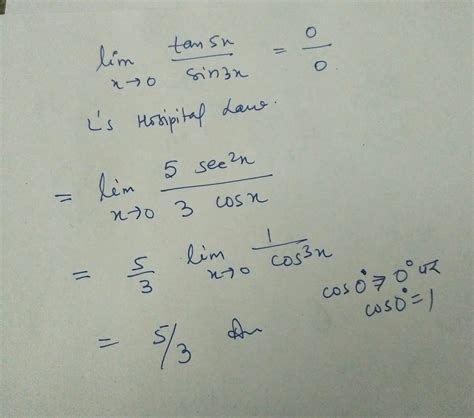 lim x→0 tan5x / sin3x = 0/0
L's Hospital Law.
= lim x→0 5 sec²x / 3 cosx
= 5/3 lim x→0 1/cos³x
cos0° ⇒ 0° पर
cos0° = 1
= 5/3 An